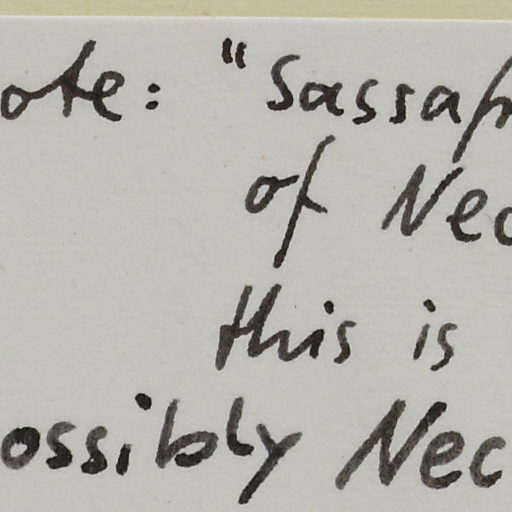 ote: "Sassafr
of Nec
this is
ossibly Nec